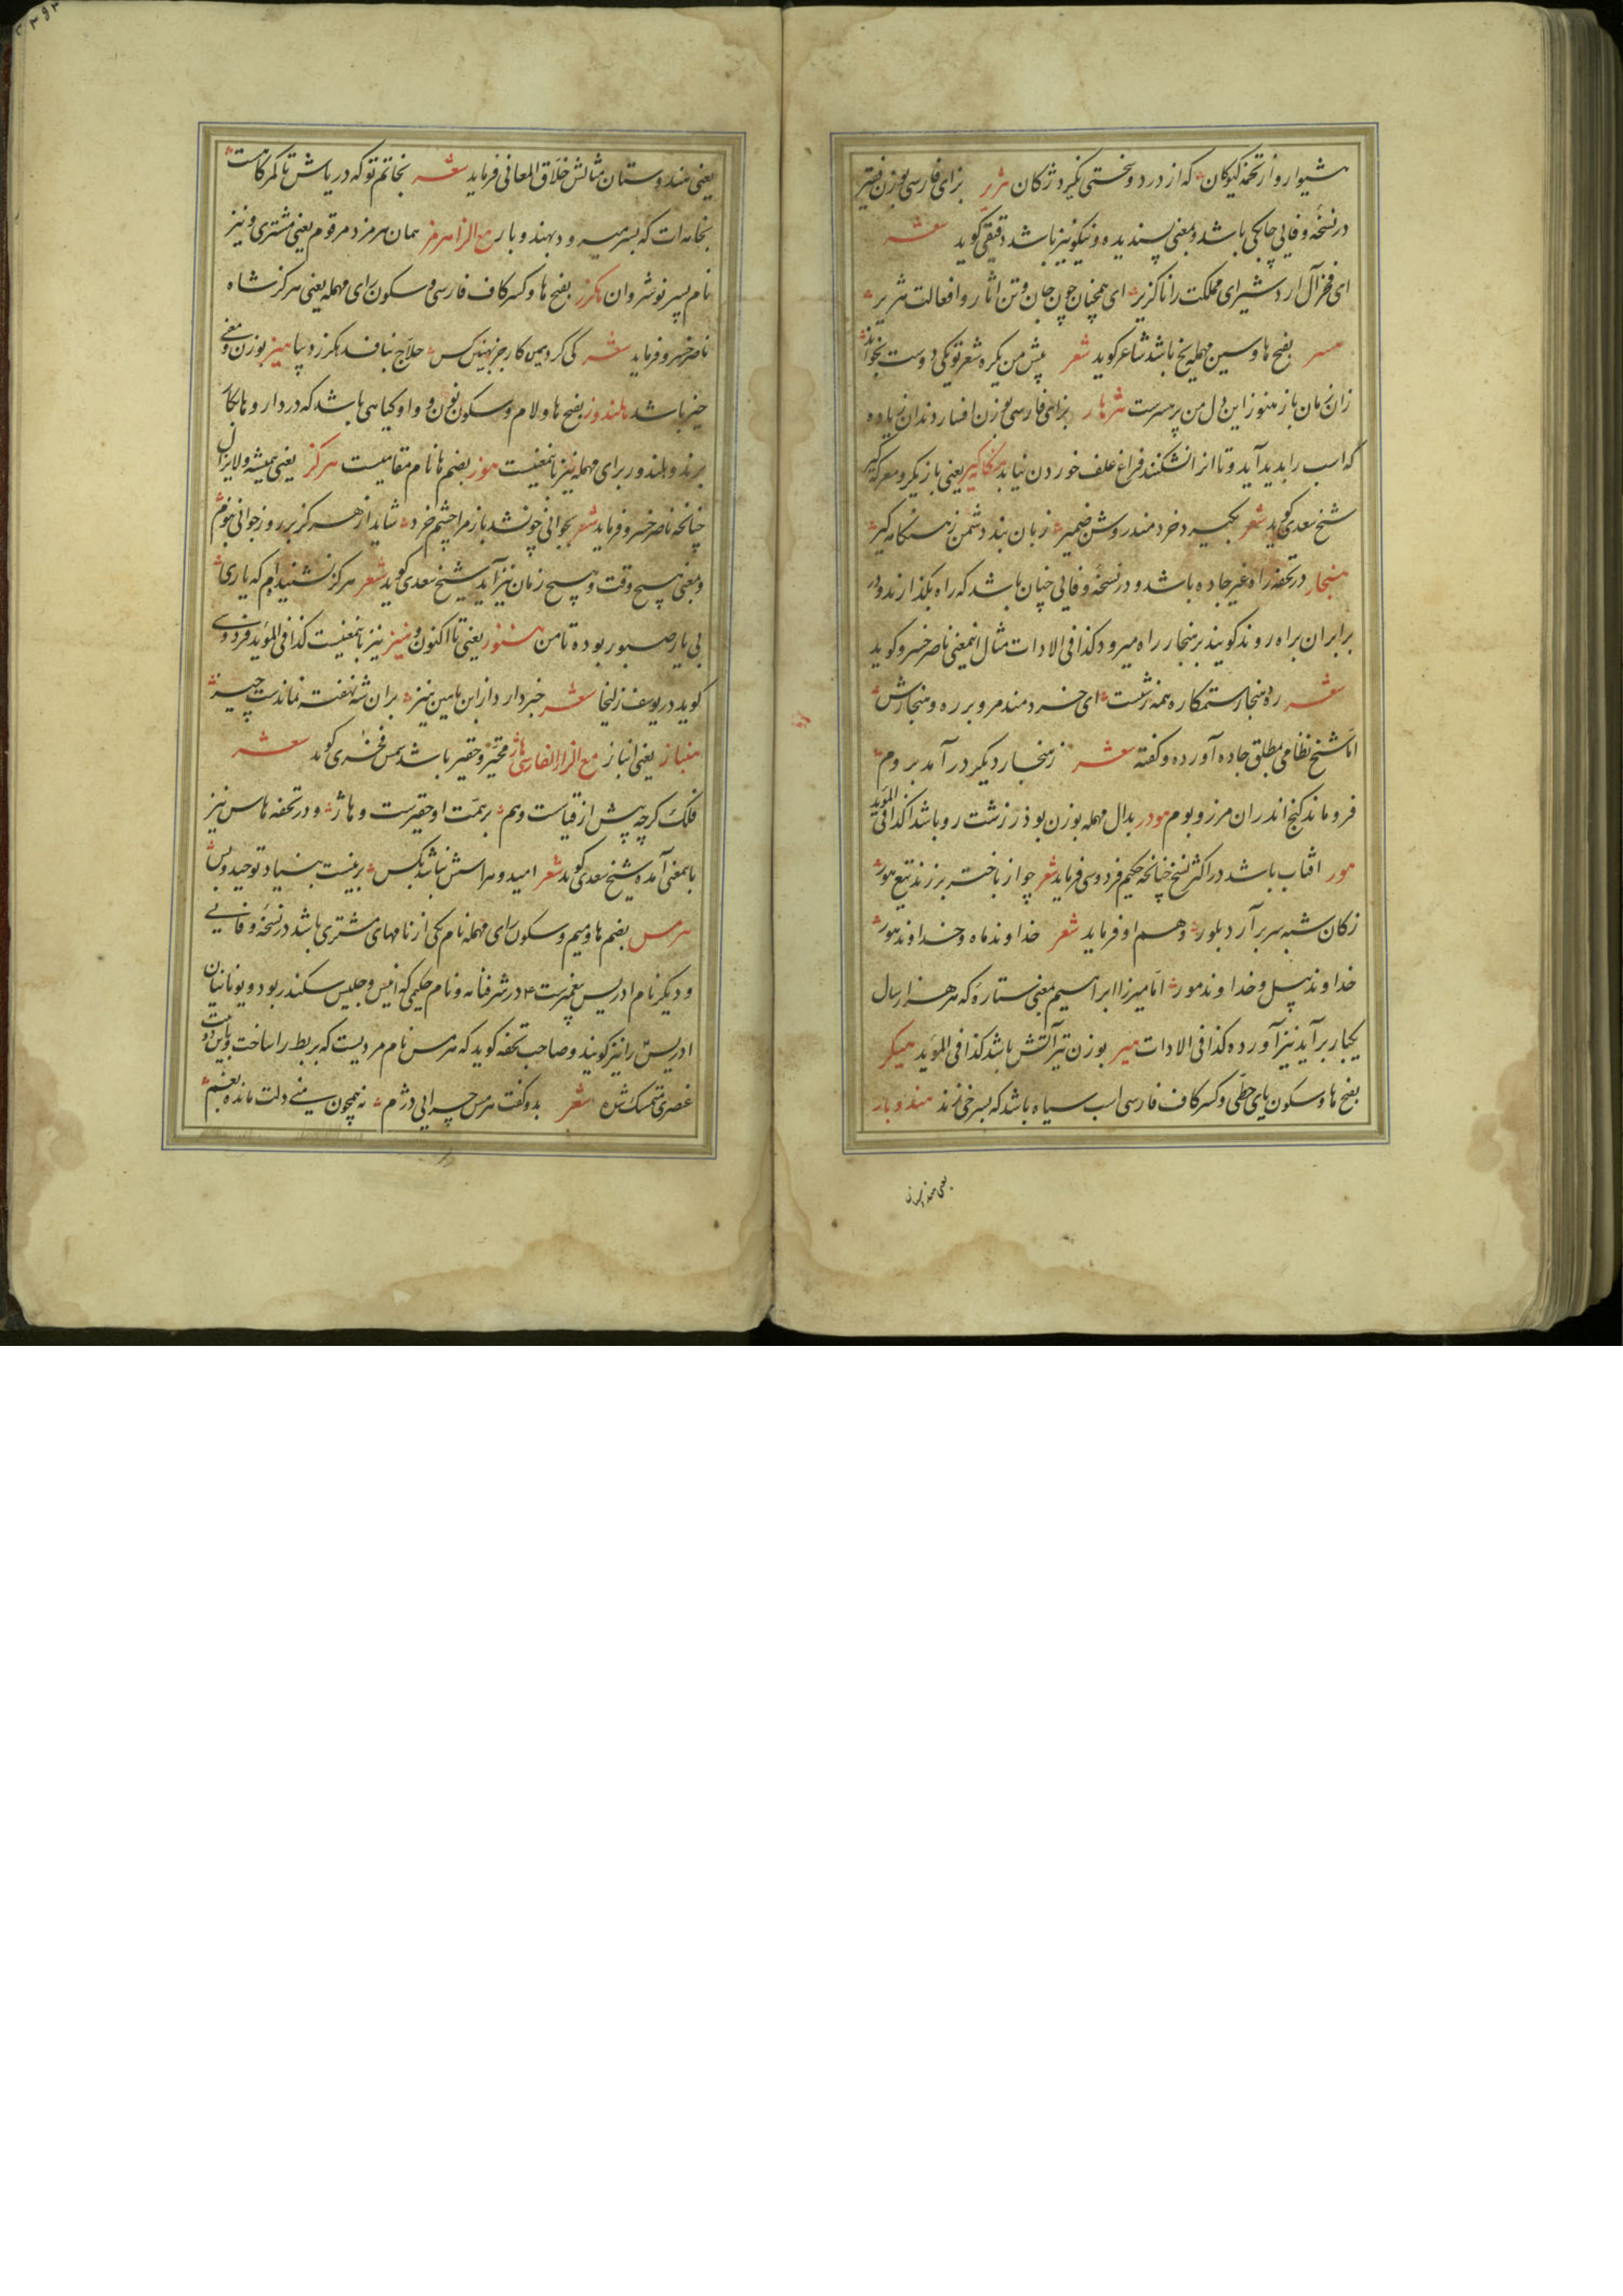 هشیوار و از تخمه کیوکان که از درد و سختی نکیرد ژکان هژیر برای فارسی بوزن فقیر
در نسخهٔ وفایی چابکی باشد و بمعنی پسندیده و نیکو نیز باشد دقیقی کوید شعر
ای فخر آل اردشیر ای مملکت را ناکزیر ای همچنان چون جان و تن اثار و افعالت هژیر
هسر بفتح ها و سین مهمله یخ باشد شاعر کوید شعر پیش من یکره شعر تو یکی دوست بخواند
زان زمان باز هنوز این دل من پر هسرست هژهار برای فارسی بوزن افسار دندان زیاده
که اسب را پدید آید و تا انرا نشکنند فراغ علف خوردن نیابد هنکامه کیر یعنی بازیکر و معرکه کیر
شیخ سعدی کوید شعر بکیسه دخردمند روشن ضمیر زبان بند دشمن ز هنکامه کیر
هنجار در تحفه راه غیر جاده باشد و در نسخهٔ وفایی چنان باشد که راه بکذارند و در
برابر ان براه روند کویند بر هنجار راه میرود کذا فی الادات مثال انمعنی ناصر خسرو کوید
شعر ره هنجار ستمکاره همه زشت ای خردمند مرو بر ره و هنجارش
اما شیخ نظامی بمطلق جاده آورده و کفته شعر ز هنجار دیکر درآمد بروم
فرو ماند کنج اندران مرز و بوم هودر بدال مهمله بوزن بوذر زشت رو باشد کذا فی المؤید
هور افتاب باشد در اکثر نسخ چنانچه حکیم فردوسی فرماید شعر چو از باختر برزند تیغ هور
ز کان شبه سر برآرد بلور و هم او فرماید شعر خداوند ماه و خداوند هور
خداوند پیل و خداوند مور اما میرزا ابراهیم بمعنی ستاره که هر هزار سال
یکبار برآید نیز آورده کذا فی الادات هیر بوزن تیر آتش باشد کذا فی المؤید هیکر
بفتح ها و سکون یای حطی و کسر کاف فارسی اسب سیاه باشد که بسرخی زند هندوبار
یعنی هندوستان مثالش خلاق المعانی فرماید شعر بخاتم تو که دریاش تا کمرکاهست
بخامه ات که بسر میرود بهندوبار مع الزا هرمز همان هرمزد مرقوم یعنی مشتری و نیز
نام پسر نوشروان هکرز بفتح ها و کسر کاف فارسی و سکون رای مهمله یعنی هرکز شاه
ناصر خسرو فرماید شعر کی کرد یمن کار جز بهین کس حلاج نبافد هکرز دیبا هیز بوزن و معنی
حیز باشد هلندوز بفتح ها و لام و سکون نون و واو کیاهی باشد که در دار و ها بکار
برند و هلندور برای مهمله نیز بانمعنیست هوز بضم ها نام مقامیست هرکز یعنی همیشه و لایزال
چنانچه ناصر خسرو فرماید شعر بجوانی چو نشد باز مرا چشم خرد شاید از هرکز بر روز جوانی نبوم
و بمعنی هیچ وقت و هیچ زمان نیز آید شیخ سعدی کوید شعر هرکز نشنیده ام که یاری
بی یار صبور بوده تا من هنوز یعنی تا اکنون و هنیز نیز بانمعنیست کذا فی المؤید فردوسی
کوید در یوسف زلیخا شعر خبردار داز ابن یامین نیز بران شه نهفته نماندست چیز
هنباز یعنی انباز مع الزا الفارسی هاژ متحیر و حقیر باشد شمس فخری کوید شعر
فلک کرچه بیش از قیاست و هم بر همت او حقیرست و هاژ و در تحفه هاس نیز
بانمعنی آمده شیخ سعدی کوید شعر امید و هراسش نباشد ز کس بر اینست بنیاد توحید و بس
هرمس بضم ها و میم و سکون رای مهمله نام یکی از نامهای مشتری باشد در نسخهٔ وفایی
و دیکر نام ادریس پیغمبرست ع م در شرفنامه و نام حکیمی که انیس و جلیس سکندر بود و یونانیان
ادریس را نیز کویند و صاحب تحفه کوید که هرمس نام مردیست که بربط را ساخت و باین دو بیت
عنصری تمسک شده شعر بدو کفت هرمس چرایی دژم نه همچون منی دلت مانده بغم
یعنی هندوستان